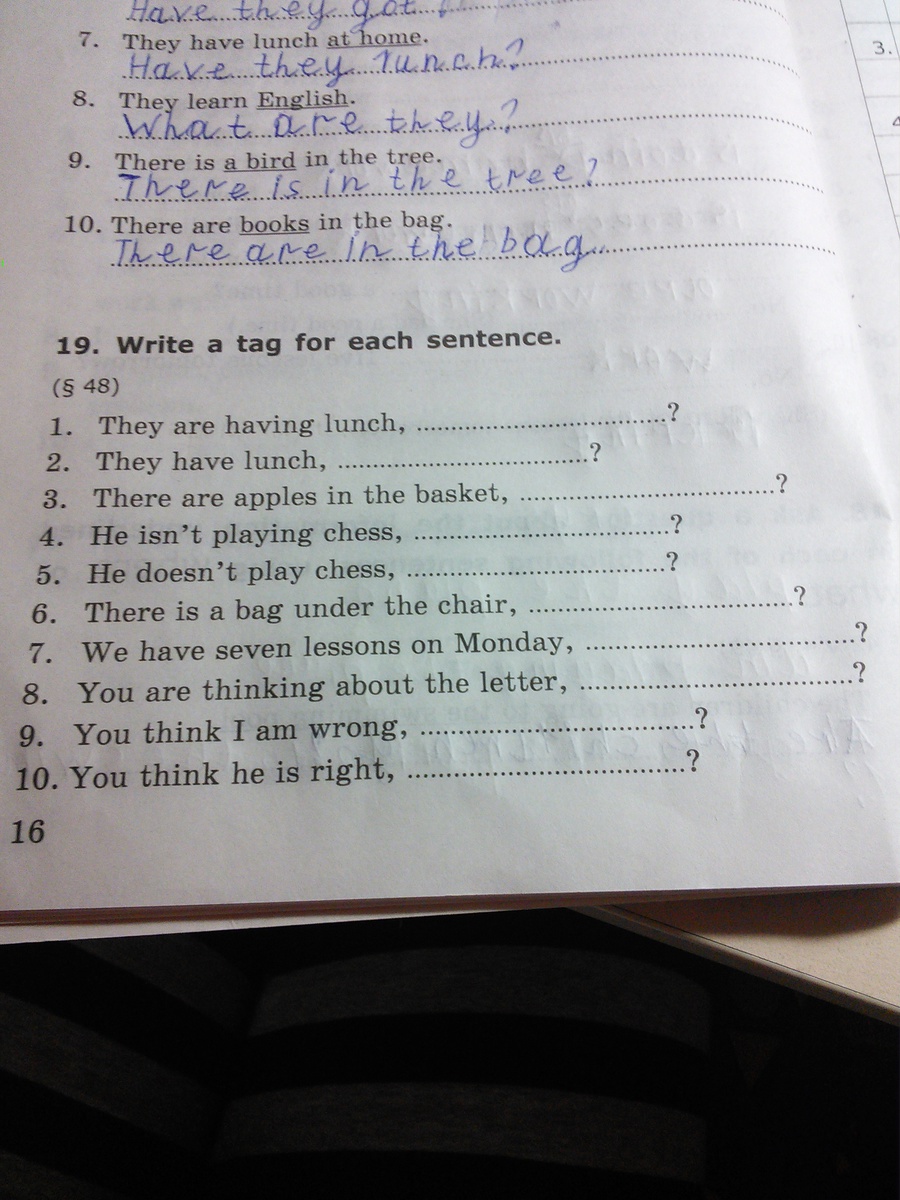 Have they got
7. They have lunch at home.
Have they lunch?
8. They learn English.
What are they?
9. There is a bird in the tree.
There is in the tree?
10. There are books in the bag.
There are in the bag
3.
19. Write a tag for each sentence.
(§ 48)
1. They are having lunch, ..............................?
2. They have lunch, ..............................?
3. There are apples in the basket, ..............................?
4. He isn't playing chess, ..............................?
5. He doesn't play chess, ..............................?
6. There is a bag under the chair, ..............................?
7. We have seven lessons on Monday, ..............................?
8. You are thinking about the letter, ..............................?
9. You think I am wrong, ..............................?
10. You think he is right, ..............................?
16